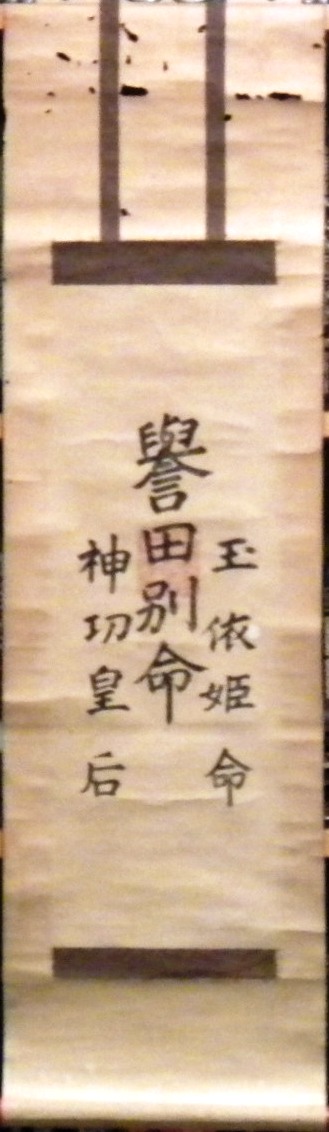 玉依姫命
譽田別命
神功皇后